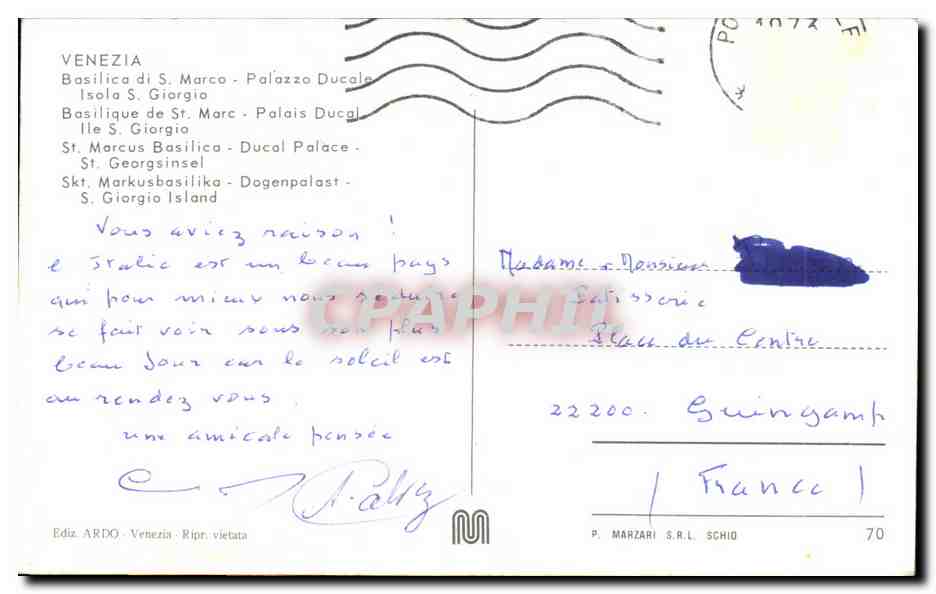 VENEZIA
Basilica di S. Marco - Palazzo Ducale
Isola S. Giorgio
Basilique de St. Marc - Palais Ducal
Ile S. Giorgio
St. Marcus Basilica - Ducal Palace -
St. Georgsinsel
Skt. Markusbasilika - Dogenpalast -
S. Giorgio Island
Vous aviez raison !
l'Italie est un beau pays
qui pour mieux nous séduire
se fait voir sous son plus
beau jour car le soleil est
au rendez vous.
une amicale pensée
Ediz. ARDO - Venezia - Ripr. vietata
Madame - Monsieur
Patisserie
Place du Centre
22200. Guingamp
(France)
P. MARZARI S.R.L. SCHIO
70
CPAPHIL